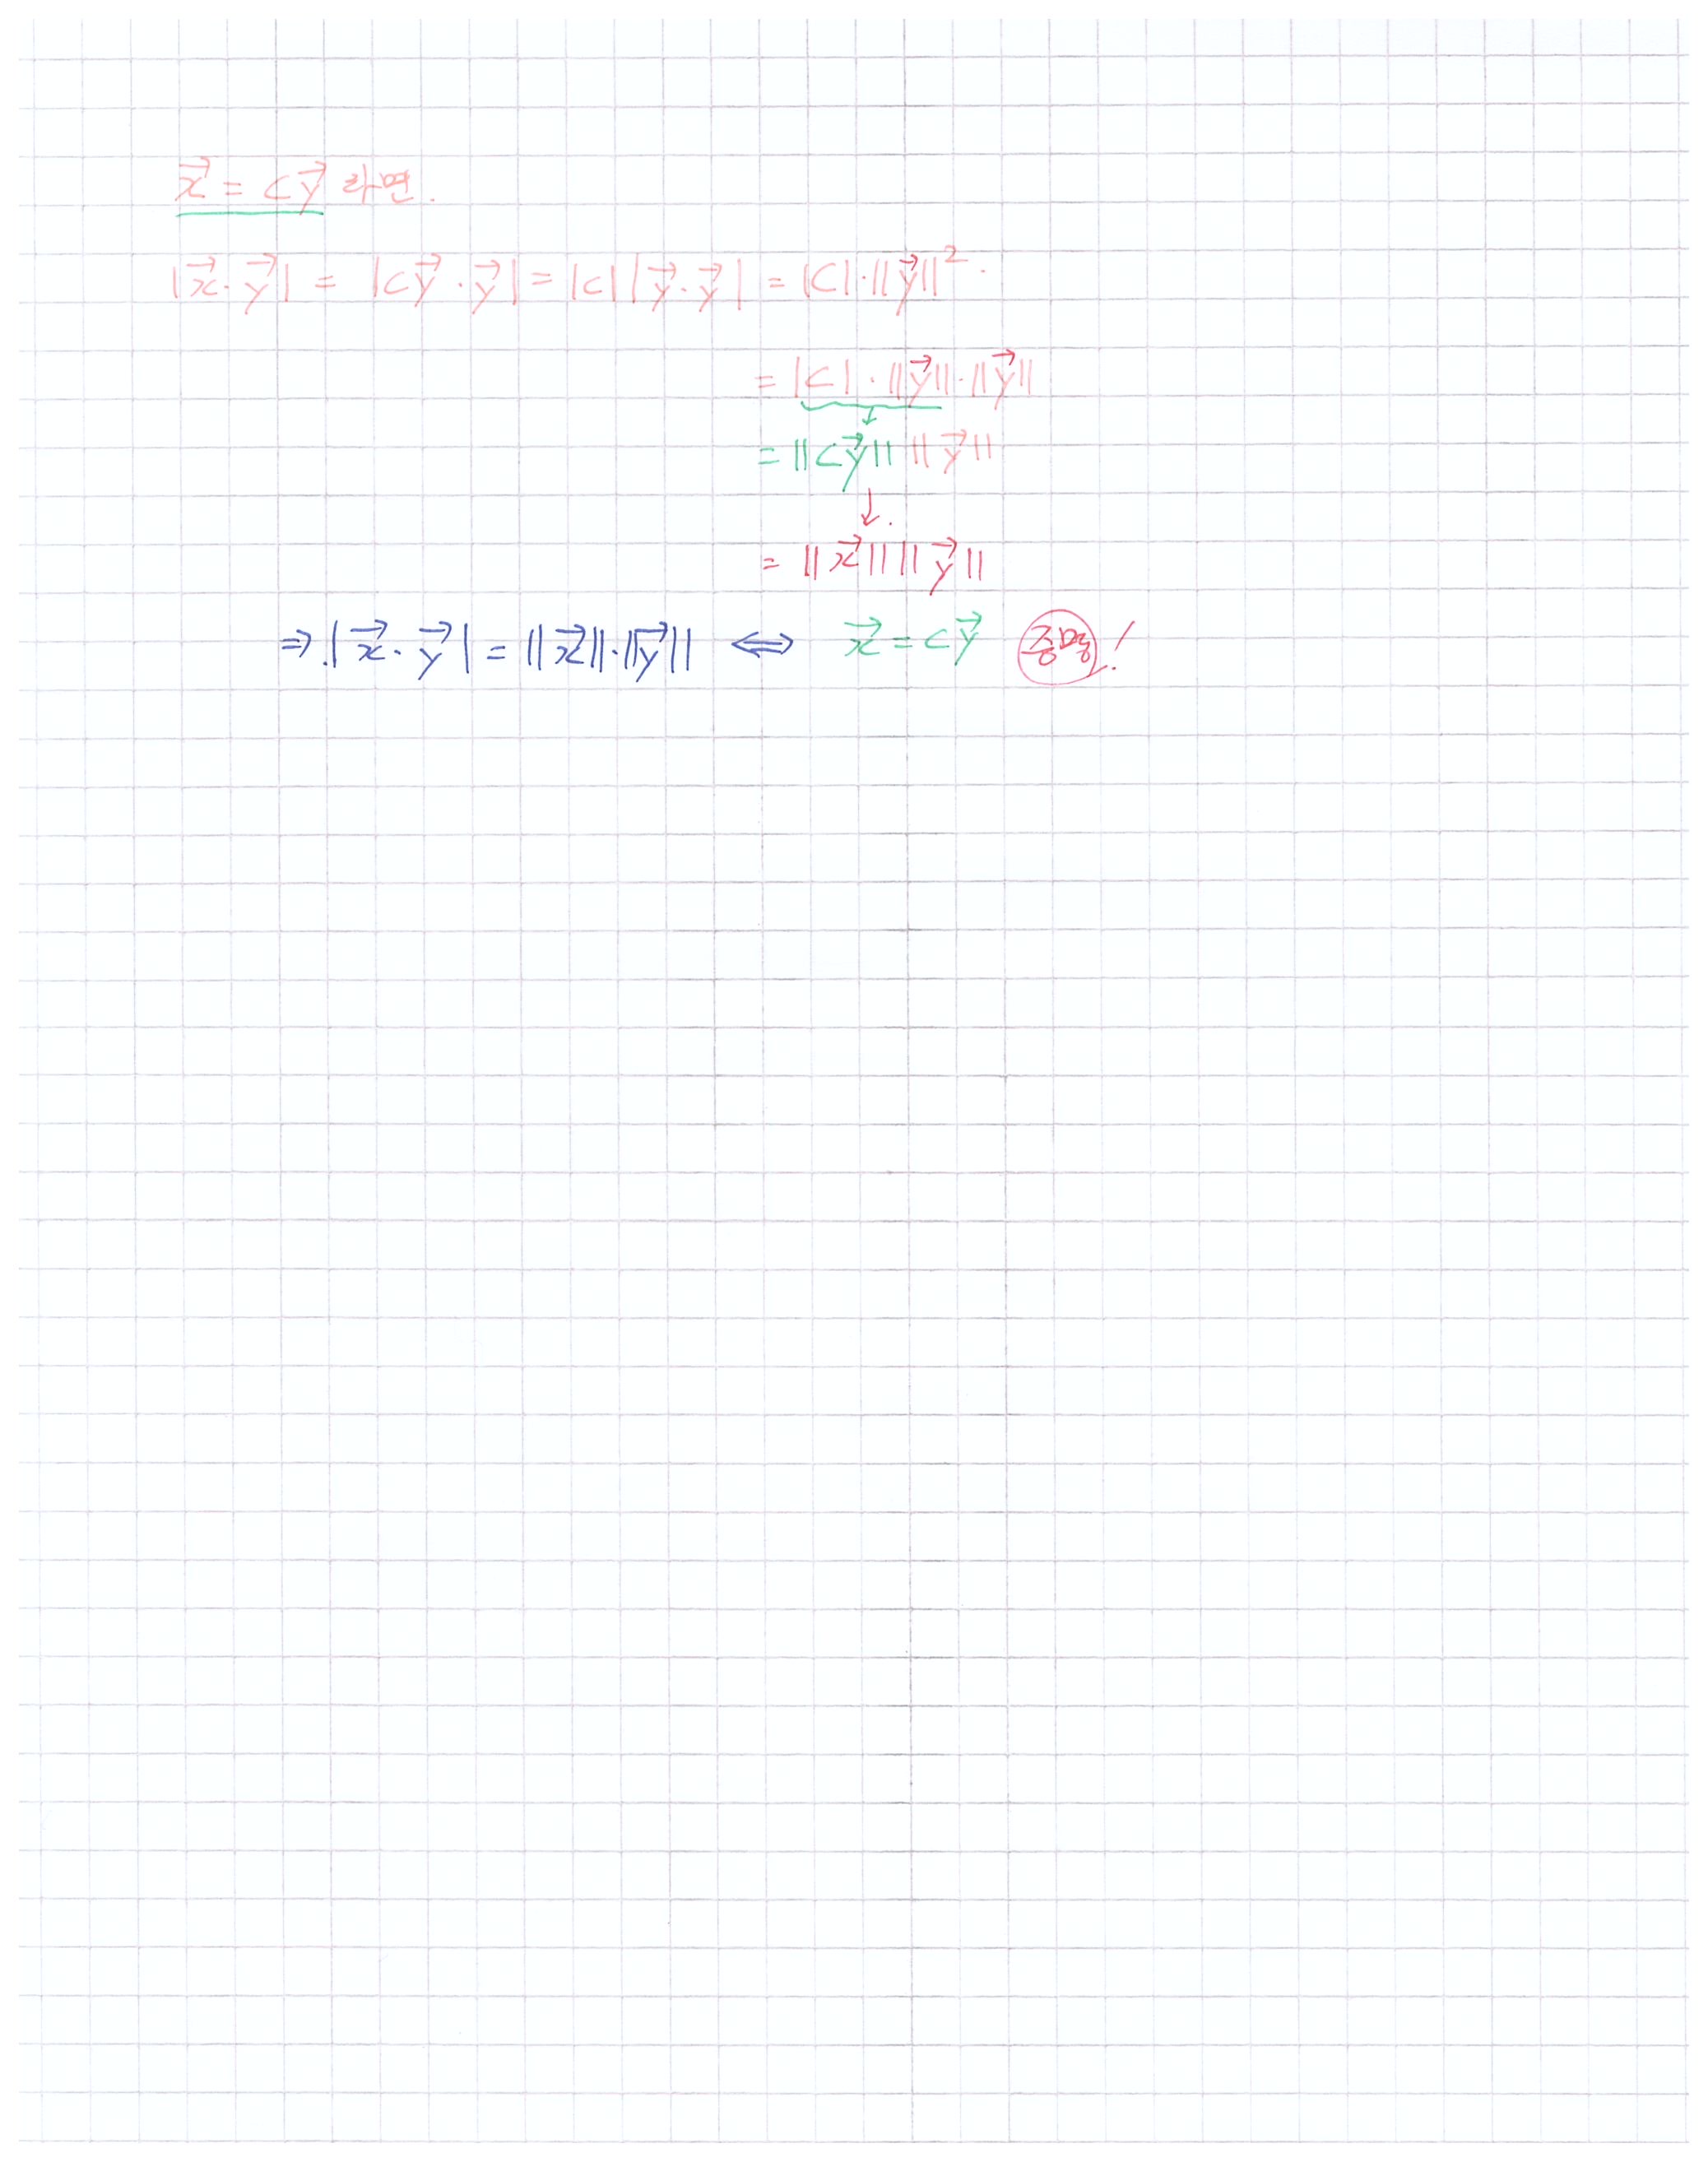 x⃗ = cy⃗ 라면.
|x⃗·y⃗| = |cy⃗·y⃗| = |c||y⃗·y⃗| = |c|·||y⃗||².
= |c|·||y⃗||·||y⃗||
↓
= ||cy⃗|| ||y⃗||
↓.
= ||x⃗|| ||y⃗||
⇒.|x⃗·y⃗| = ||x⃗||·||y⃗|| ⇔ x⃗ = cy⃗ 증명!